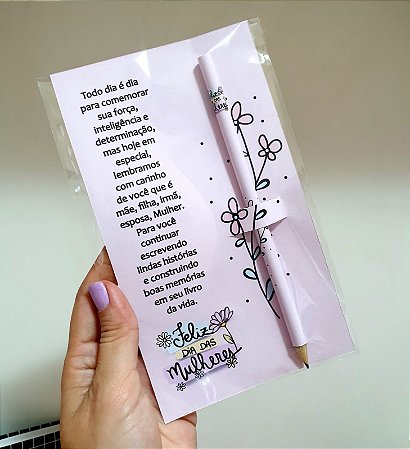 Todo dia é dia
para comemorar
sua força,
inteligência e
determinação,
mas hoje em
especial,
lembramos
com carinho
de você que é
mãe, filha, irmã,
esposa, Mulher.
Para você
continuar
escrevendo
lindas histórias
e construindo
boas memórias
em seu livro
da vida.
Feliz
DIA DAS
Mulheres